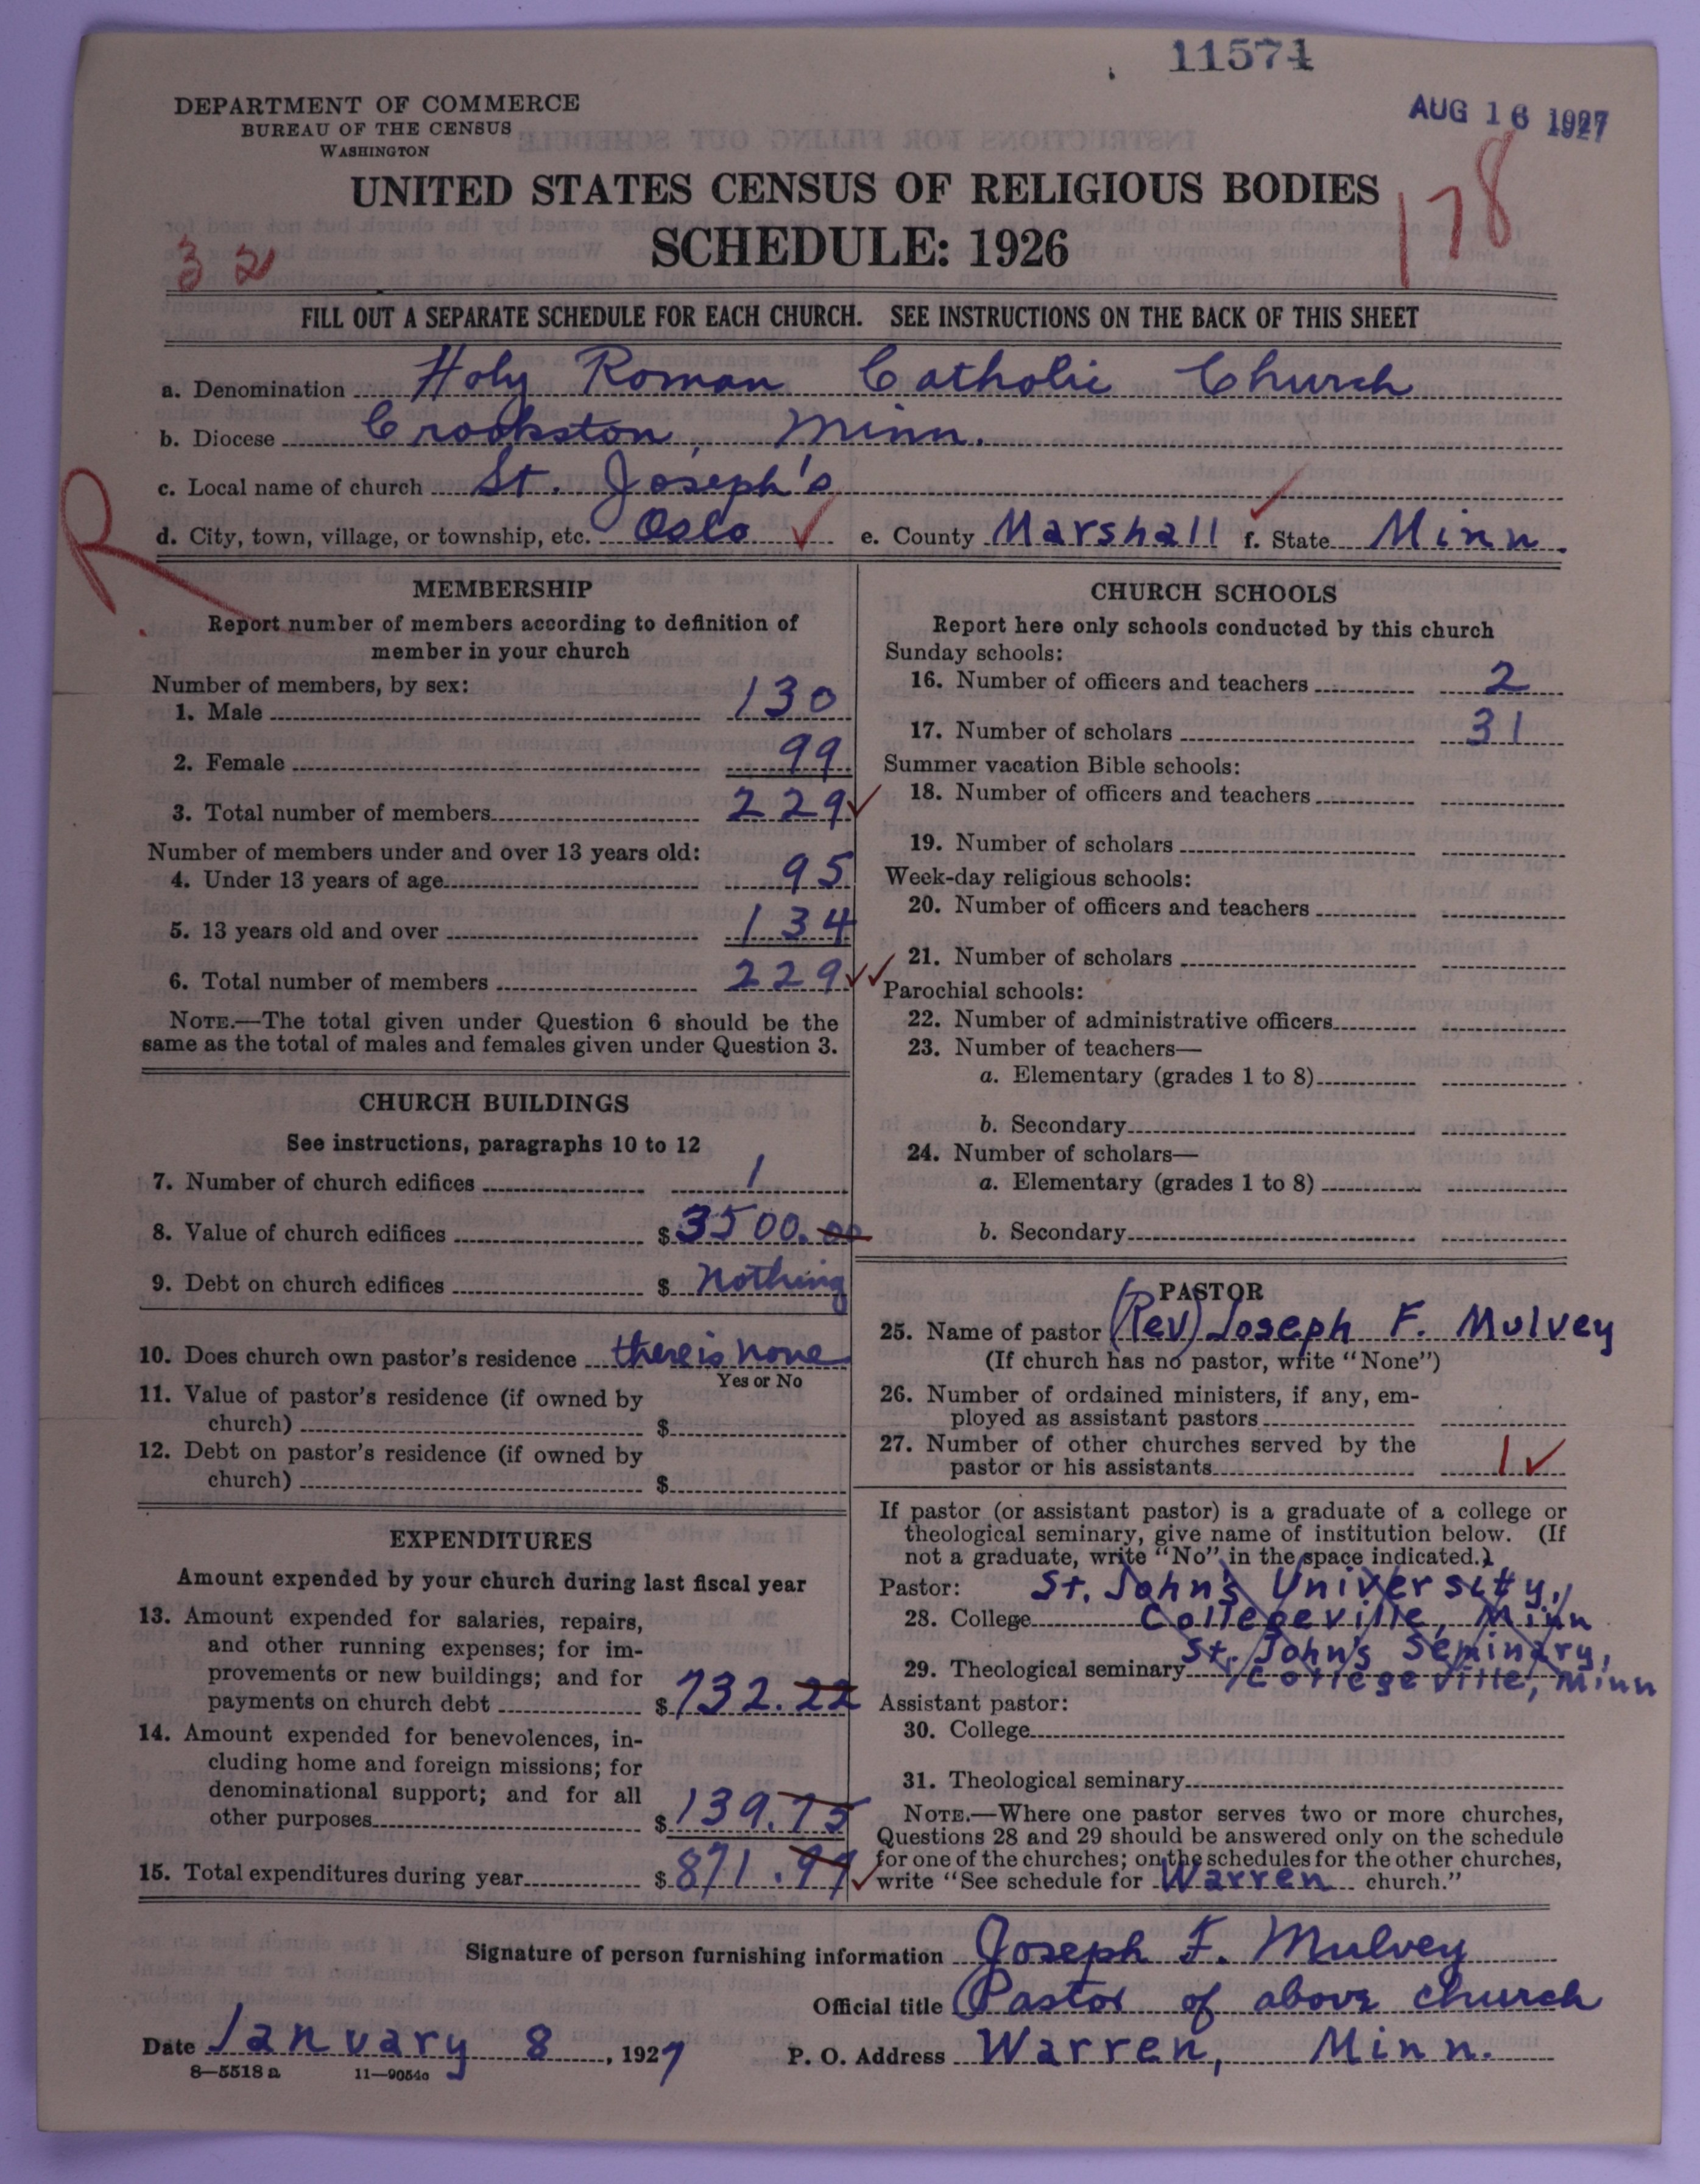 11574
AUG 16 1927
DEPARTMENT OF COMMERCE
BUREAU OF THE CENSUS
WASHINGTON
UNITED STATES CENSUS OF RELIGIOUS BODIES
178
SCHEDULE: 1926
32
FILL OUT A SEPARATE SCHEDULE FOR EACH CHURCH. SEE INSTRUCTIONS ON THE BACK OF THIS SHEET
a. Denomination Holy Roman Catholic Church
b. Diocese Crookston, Minn.
c. Local name of church St. Joseph's
R
d. City, town, village, or township, etc. Oslo ✓ e. County Marshall f. State Minn.
MEMBERSHIP
Report number of members according to definition of
member in your church
Number of members, by sex:
1. Male 130
2. Female 99
3. Total number of members 229 ✓
Number of members under and over 13 years old:
4. Under 13 years of age 95
5. 13 years old and over 134
6. Total number of members 229 ✓✓
NOTE.—The total given under Question 6 should be the
same as the total of males and females given under Question 3.
CHURCH BUILDINGS
See instructions, paragraphs 10 to 12
7. Number of church edifices 1
8. Value of church edifices $ 3500.00
9. Debt on church edifices $ Nothing
10. Does church own pastor's residence there is none
Yes or No
11. Value of pastor's residence (if owned by
church) $
12. Debt on pastor's residence (if owned by
church) $
EXPENDITURES
Amount expended by your church during last fiscal year
13. Amount expended for salaries, repairs,
and other running expenses; for im-
provements or new buildings; and for
payments on church debt $ 732.22
14. Amount expended for benevolences, in-
cluding home and foreign missions; for
denominational support; and for all
other purposes $ 139.75
15. Total expenditures during year $ 871.97 ✓
CHURCH SCHOOLS
Report here only schools conducted by this church
Sunday schools:
16. Number of officers and teachers 2
17. Number of scholars 31
Summer vacation Bible schools:
18. Number of officers and teachers
19. Number of scholars
Week-day religious schools:
20. Number of officers and teachers
21. Number of scholars
Parochial schools:
22. Number of administrative officers
23. Number of teachers—
a. Elementary (grades 1 to 8)
b. Secondary
24. Number of scholars—
a. Elementary (grades 1 to 8)
b. Secondary
PASTOR
25. Name of pastor (Rev) Joseph F. Mulvey
(If church has no pastor, write "None")
26. Number of ordained ministers, if any, em-
ployed as assistant pastors
27. Number of other churches served by the
pastor or his assistants 1 ✓
If pastor (or assistant pastor) is a graduate of a college or
theological seminary, give name of institution below. (If
not a graduate, write "No" in the space indicated.)
Pastor: St. John's University,
28. College Collegeville, Minn
St. John's Seminary,
29. Theological seminary Collegeville, Minn
Assistant pastor:
30. College
31. Theological seminary
NOTE.—Where one pastor serves two or more churches,
Questions 28 and 29 should be answered only on the schedule
for one of the churches; on the schedules for the other churches,
write "See schedule for Warren church."
Signature of person furnishing information Joseph F. Mulvey
Official title Pastor of above church
Date January 8, 1927 P. O. Address Warren, Minn.
8—5518 a 11—9054a